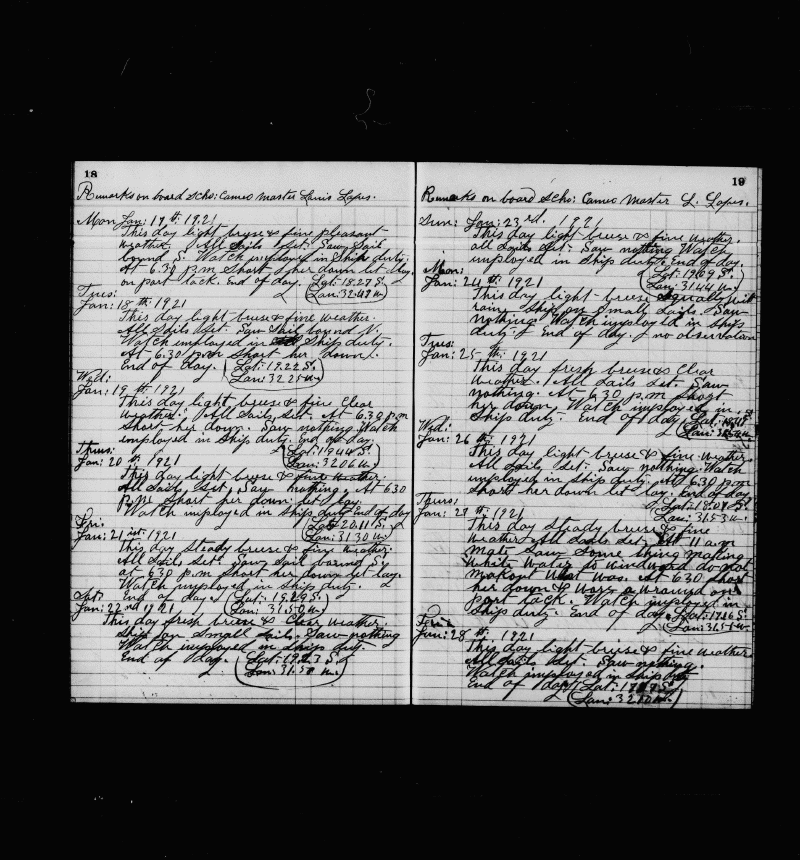 18
Remarks on board Scho: Cameo Master Louis Lopes.
Mon Jan: 17th. 1921
This day light breuse & fine pleasant
weather. All sails set. Saw Sail
bound S. Watch imployed in Ship duty.
At 6.30 p.m Short her down let lay.
on port tack. End of day. Lat: 18.27 S.
Lon: 32.47 w.
Tues:
Jan: 18th. 1921
This day light breuse & fine weather.
All Sails Set. Saw Sail bound N.
Watch imployed in Ship duty.
At 6.30 p.m Short her down.
End of day. Lat: 19.22 S.
Lon: 32.25 w.
Wed:
Jan: 19th. 1921
This day light breuse & fine Clear
weather. All Sails Set. At 6.30 p.m
Short her down. Saw nothing. Watch
employed in Ship duty. End of day.
Lat: 19.44 S.
Lon: 32.06 w.
Thurs:
Jan: 20th. 1921
This day light breuse & fine weather.
All Sails Set. Saw nothing. At 6.30
P.M. Short her down let lay.
Watch imployed in Ship duty. End of day
Lat: 20.11 S.
Lon: 31.30 w.
Fri:
Jan: 21st. 1921
This day steady breuse & fine weather.
All Sails Set. Saw Sail bound Sy
at 6.30 p.m short her down let lay.
Watch imployed in Ship duty.
End of day. Lat: 19.29 S.
Lon: 31.50 w.
Sat:
Jan: 22nd 1921
This day fresh breuse & Clear weather.
Ship on Small Sails. Saw nothing
Watch imployed in Ships duty.
End of day. Lat: 19.23 S.
Lon: 31.51 w.
19
Remarks on board Scho: Cameo Master L. Lopes.
Sun: Jan: 23rd. 1921
This day light breuse & fine weather.
all Sails Set. Saw nothing Watch
imployed in Ship duty. End of day.
Lat: 19.09 S.
Lon: 31.44 w.
Mon:
Jan: 24th 1921
This day light breuse squally with
rain. Ship on Small Sails. Saw
nothing. Watch imployed in Ships
duty. End of day. no observation
Tues:
Jan: 25th. 1921
This day fresh breuse & Clear
weather. All Sails Set. Saw
nothing. At 6.30 p.m short
her down, Watch imployed in
Ship duty. End of day. Lat:
Lon:
Wed:
Jan: 26th. 1921
This day light breuse & fine weather
All Sails Set. Saw nothing. Watch
imployed in Ship duty. At 6.30 p.m
Short her down let lay. End of day
Lat:
Lon: 31.53 w.
Thurs:
Jan: 27th. 1921
This day Steady breuse & fine
weather. All Sails Set. At 11 a.m
Mate Saw Some thing making
white water to windward do not
makout What was. At 6.30 short
her down & wore around on
Port tack. Watch imployed in
Ship duty. End of day. Lat: 17.16 S.
Lon: 31.51 w.
Fri:
Jan: 28th. 1921
This day light breuse & fine weather
All Sails Set. Saw nothing.
Watch imployed in Ship duty
End of day. Lat:
Lon: